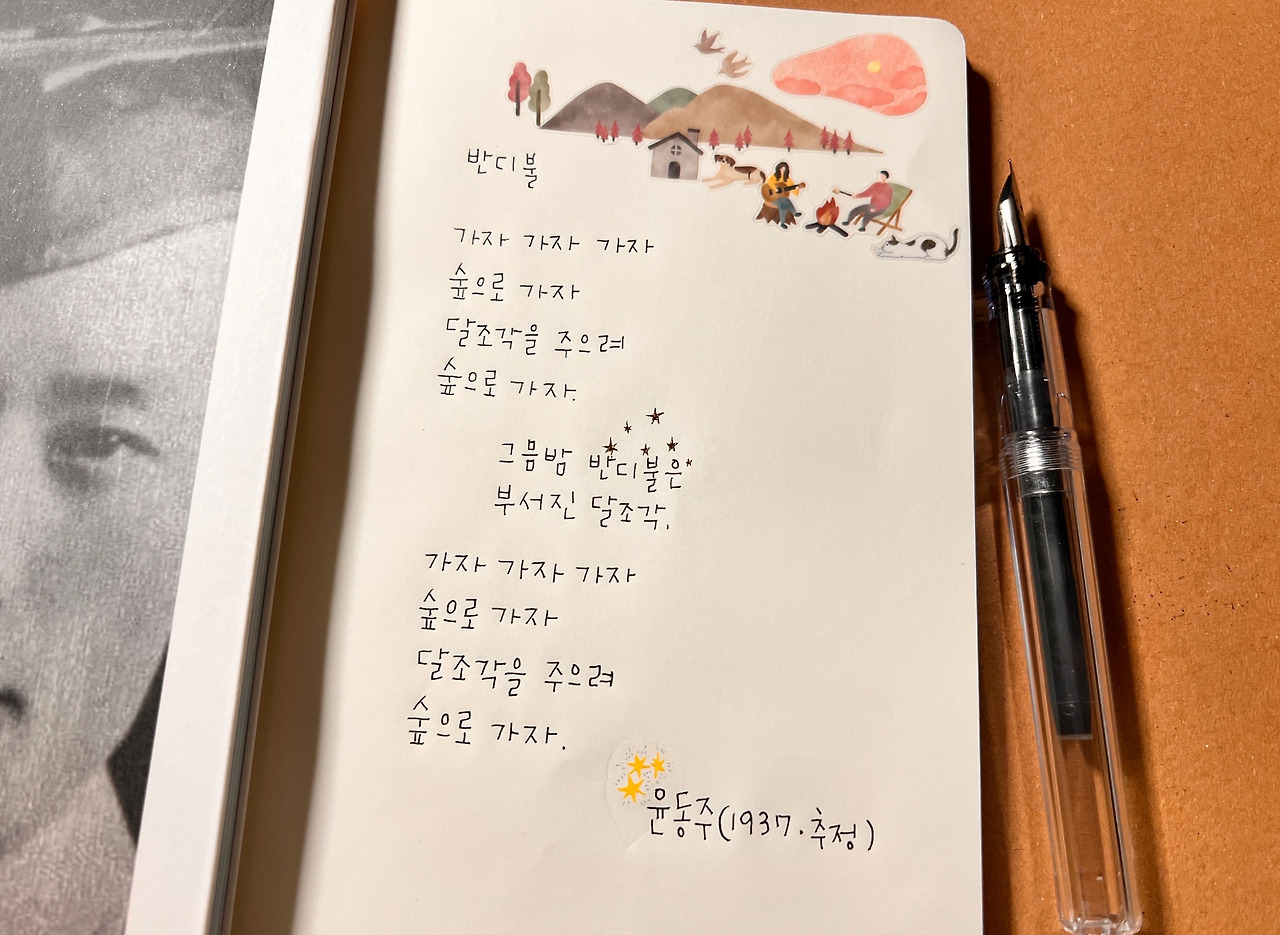 반디불
가자 가자 가자
숲으로 가자
달조각을 주으려
숲으로 가자.
그믐밤 반디불은
부서진 달조각.
가자 가자 가자
숲으로 가자
달조각을 주으려
숲으로 가자.
윤동주(1937.추정)